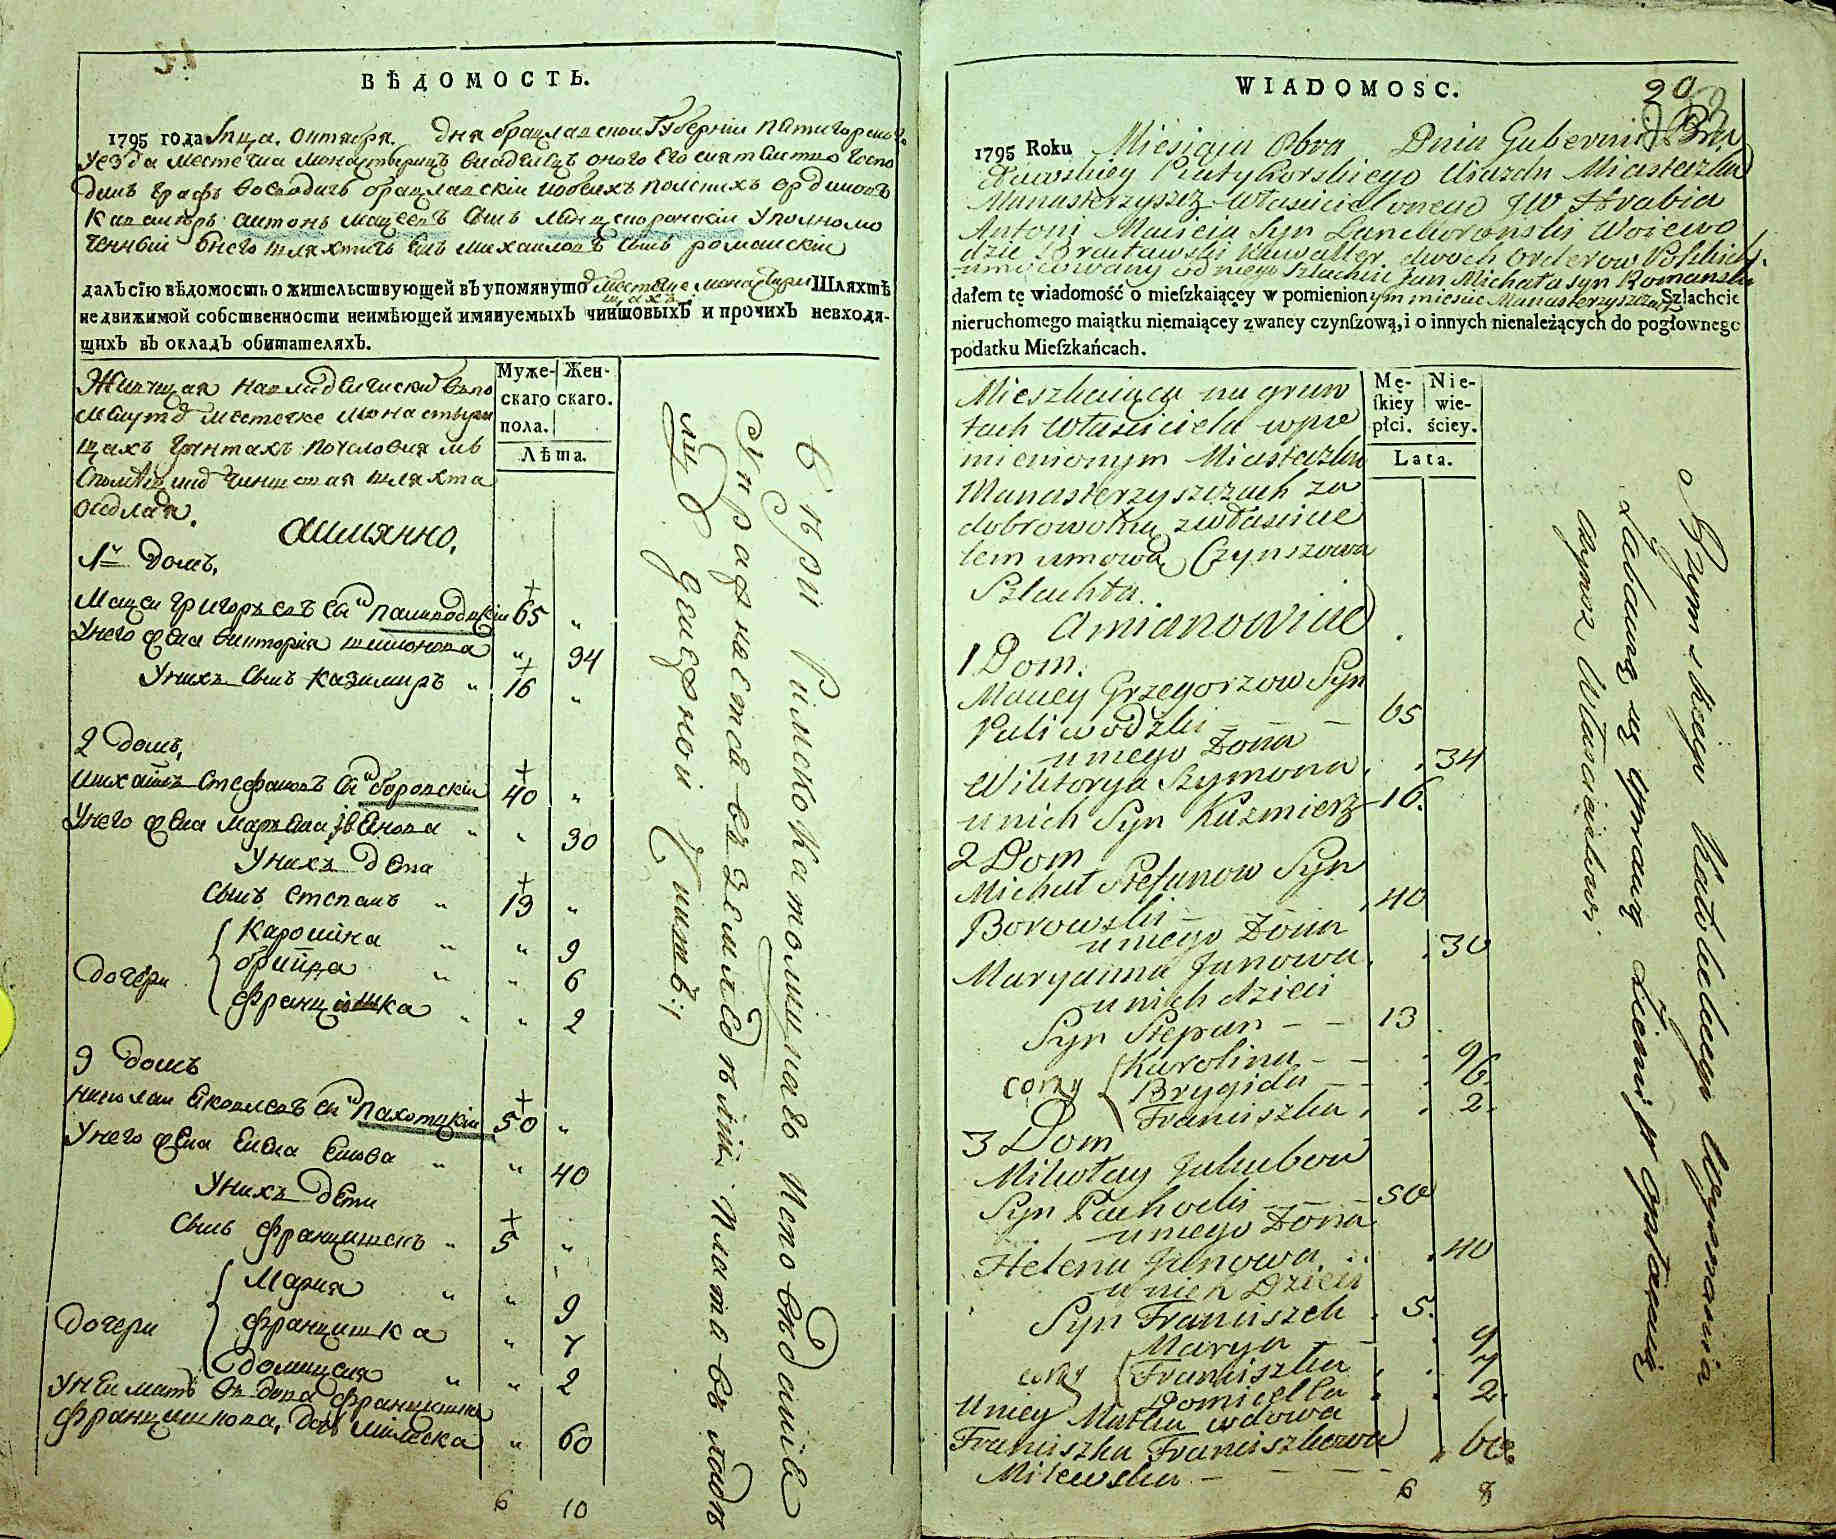 ВѢДОМОСТЬ.
1795 года Мца. Октября. Дня брацлавской Губерніи пятигорскаго
уезда местечка Монастырищъ владелецъ оного его сиятелство Госпо
динъ графъ воевода брацлавскіи и обеихъ полскихъ ординовъ
кавалеръ антонъ мацеевъ сынъ Лянцкоронскіи уполномо
ченный отнего шляхтичъ янъ михаиловъ сынъ романскіи
далъ сію вѣдомость о жительствующей въ упомянуто местечке монастыри
щахъ Шляхтѣ
недвижимой собственности неимѣющей имянуемыхъ чиншовыхъ и прочихъ невходя-
щихъ въ окладъ обитателяхъ.
Муже-
скаго
пола.
Жен-
скаго.
Лѣта.
Живущая навладелческихъ впо
мянутом местечке монасты
щахъ грунтахъ
чиншовая шляхта
оседлая.
Аимянно.
1й домъ.
Мацеи григорьевъ сынъ паливодскіи 65 „
Унего жена виктория шимонова „ 34
Унихъ сынъ казимиръ „ 16 „
2 домъ,
михаилъ стефановъ сынъ боровскіи 40 „
Унего жена марьяна Іванова „ „ 30
Унихъ дети
сынъ степанъ „ 13 „
дочери
каролина „ „ 9
бригида „ „ 6
францишка „ „ 2
3 домъ
николаи яковлевъ сынъ пахотскіи 50 „
Унего жена елена янова „ „ 40
Унихъ дети
сынъ францишекъ „ 5 „
дочери
Мария „ „ 9
францишка „ 7
домицеля „ „ 2
Унеи мать вдова францишка
францишкова, милевска „ 60
6 10
Скрии Римско католицкаго исповеданіе
упражнѣется в земледѣліи плата владѣ
лцу денежной Чиншъ;
WIADOMOSC.
20
1795 Roku Miesiąca 8bra Dnia Gubernii Bra
cławskiey Piatyhorskiego Uiazdu Miasteczka
Manasterzyszcz Własciciel onego JW Hrabia
Antoni Macieia Syn Lanckoronski Woiewo
dzic Bracławski Kawaller dwoch Orderow Polskich
umocowany od niego Szlachcic Jan Michała syn Romanski
dałem tę wiadomość o mieſzkaiącey w pomienionym miescie Manasterzyszczach Szlachcie
nieruchomego maiątku niemaiącey zwaney czynſzową, i o innych nienależących do pogłownego
podatku Mieſzkańcach.
Mę-
ſkiey
płci.
Nie-
wie-
ściey.
Lata.
Mieszkaiąca na grun
tach Własciciela wpo
mienionym Miasteczku
Manasterzyszczach za
dobrowolną zwłascicie
lem umową Czynszowa
Szlachta.
Amianowicie
1 Dom.
Maciey Grzegorzow Syn
Paliwodzki – – 65
u niego Żona
Wiktorya Szymona . . 34
u nich Syn Kazmierz – 16.
2 Dom
Michał Stefanow Syn
Borowski – – 40
u niego Żona
Maryanna Janowa . . 30
u nich dzieci
Syn Stepan – – 13
corky
Karolina – – . 9
Brygida – – . 6.
Franciszka . . 2.
3 Dom
Mikołay Jakubow
Syn Pachocki – – 50
u niego Żona
Helena Janowa . . 40
u nich Dzieci
Syn Franciszek . 5.
corky
Marya – . 9
Franciszka . . 7
Domicella . . 2.
Uniey Matka wdowa
Franciszka Franciszkowa . 60.
Milewska – – – –
6 8
Rzymskiego Katolickiego Wyznania
Zabawą się uprawą Ziemi, opłacaią
Czynsz Włascicielowi.